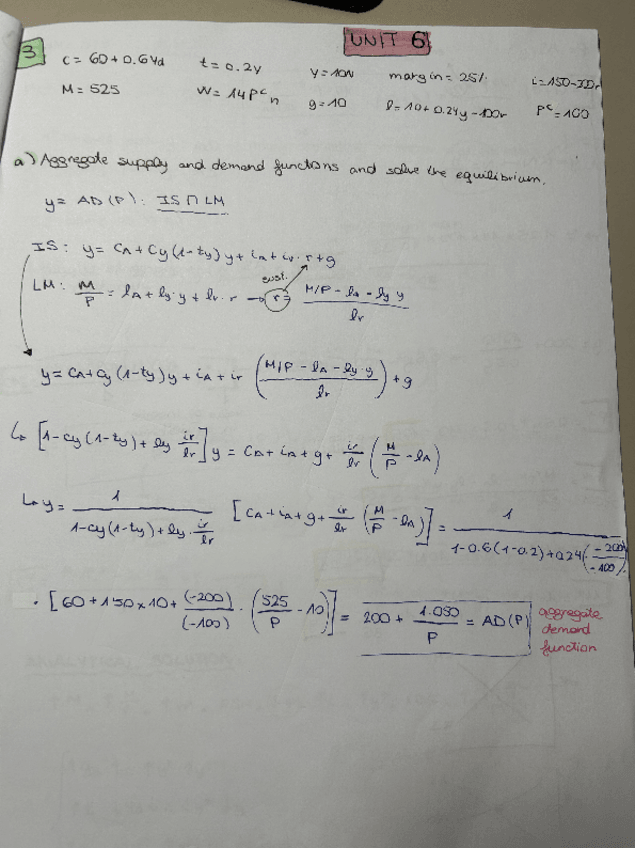 UNIT 6
3 C = 60 + 0.6Yd t = 0.2y y = 10N margin = 25% i = 150 - 200r
M = 525 W = 14P^c n g = 10 l = 10 + 0.24y - 100r P^c = 100
a) Aggregate supply and demand functions and solve the equilibrium.
y = AD (P): IS ∩ LM
IS: y = CA + Cy (1 - ty) y + iA + ir · r + g
LM: M/P = lA + ly · y + lr · r → r = (M/P - lA - ly y)/lr
sust.
y = CA + Cy (1 - ty) y + iA + ir ((M/P - lA - ly · y)/lr) + g
↳ [1 - cy (1 - ty) + ly ir/lr] y = CA + iA + g + ir/lr (M/P - lA)
↳ y = 1/(1 - cy (1 - ty) + ly · ir/lr) [CA + iA + g + ir/lr (M/P - lA)] = 1/(1 - 0.6 (1 - 0.2) + 0.24 (-200/-100)) ·
· [60 + 150 + 10 + (-200)/(-100) · (525/P - 10)] = 200 + 1.050/P = AD (P) aggregate demand function